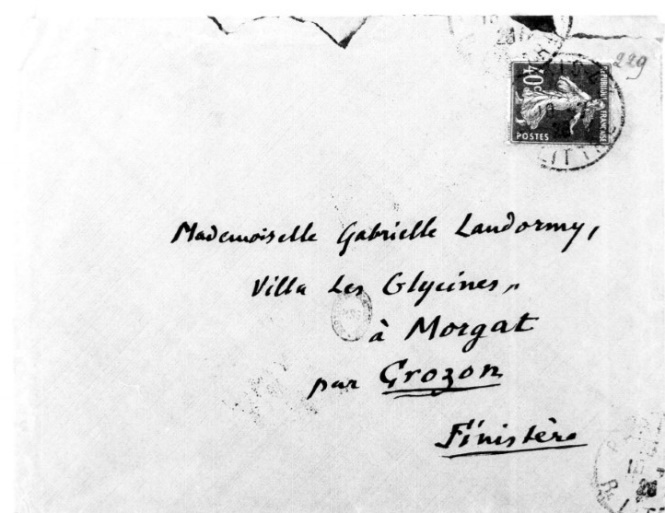 229
40c
POSTES
Mademoiselle Gabrielle Landormy,
Villa Les Glycines,
à Morgat
par Crozon
Finistère